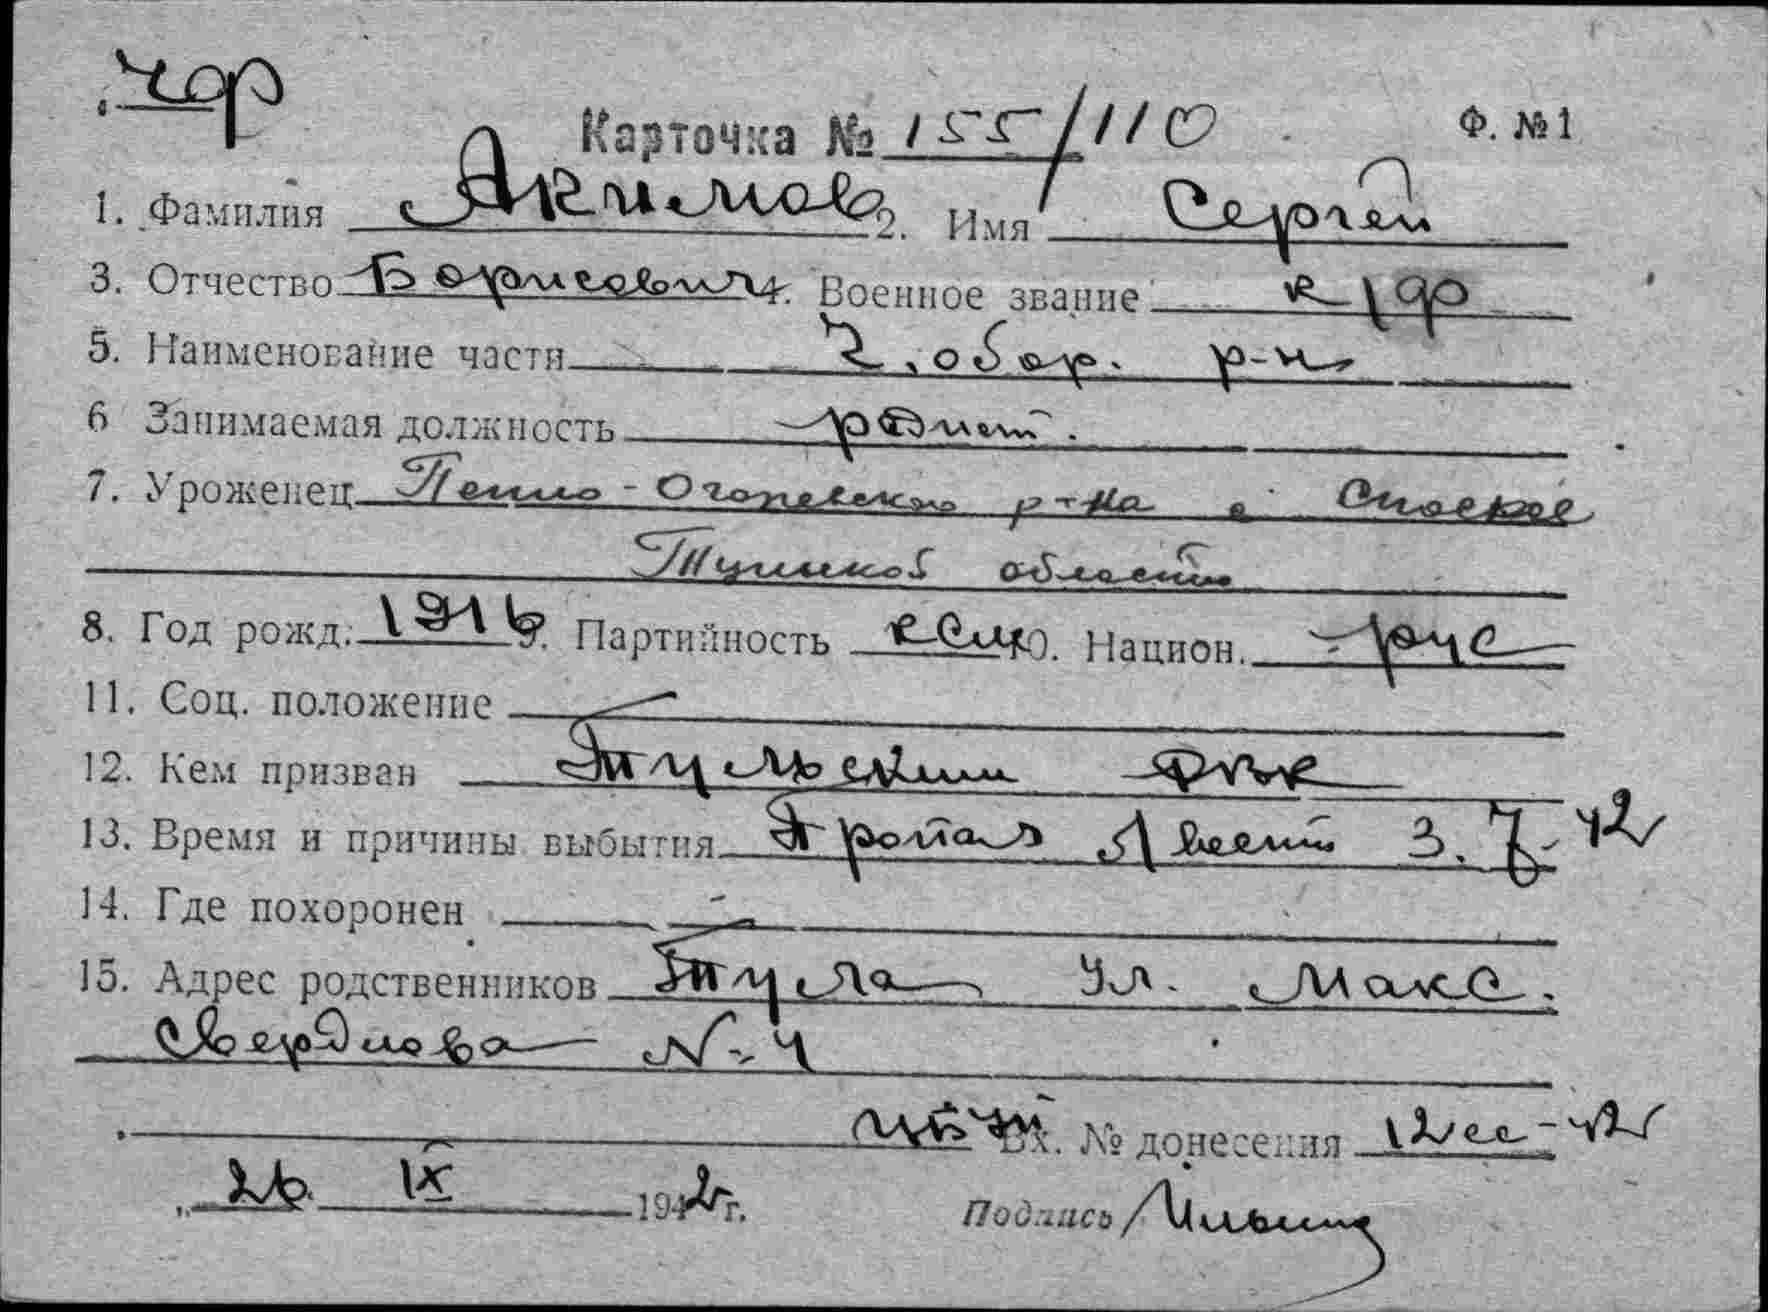 чф
Карточка № 155/110 Ф. №1
1. Фамилия Акимов 2. Имя Сергей
3. Отчество Борисович 4. Военное звание к/ф
5. Наименование части Ч. обор. р-н
6 Занимаемая должность радист.
7. Уроженец Тепло-Огоревского р-на с Спаское
Тульской области
8. Год рожд. 1916 9. Партийность ксм 10. Национ. рус
11. Соц. положение
12. Кем призван Тульским РВК
13. Время и причины выбытия Пропал Авест 3. 7-42
14. Где похоронен
15. Адрес родственников Тула ул. Макс.
Свердлова N-4
Вх. № донесения 12сс-42
„ 26 IX 1942г. Подпись Ильина